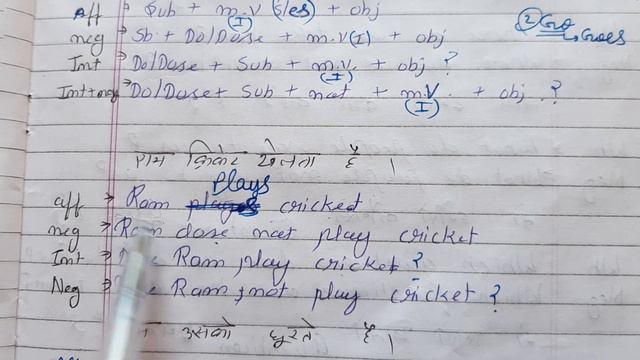 Aff → Sub + m.V (I) (s/es) + obj
neg → Sb + Do/Dose + m.V (I) + obj
② Go Goes
Int → Do/Dose + Sub + m.V. (I) + obj ?
Int+neg → Do/Dose + Sub + not + m.V. (I) + obj. ?
राम क्रिकेट खेलता है ।
aff → Ram plays cricket
neg → Ram dose not play cricket
Int → Ram play cricket ?
Neg → Ram, not play cricket ?
उसको घुरते है ।